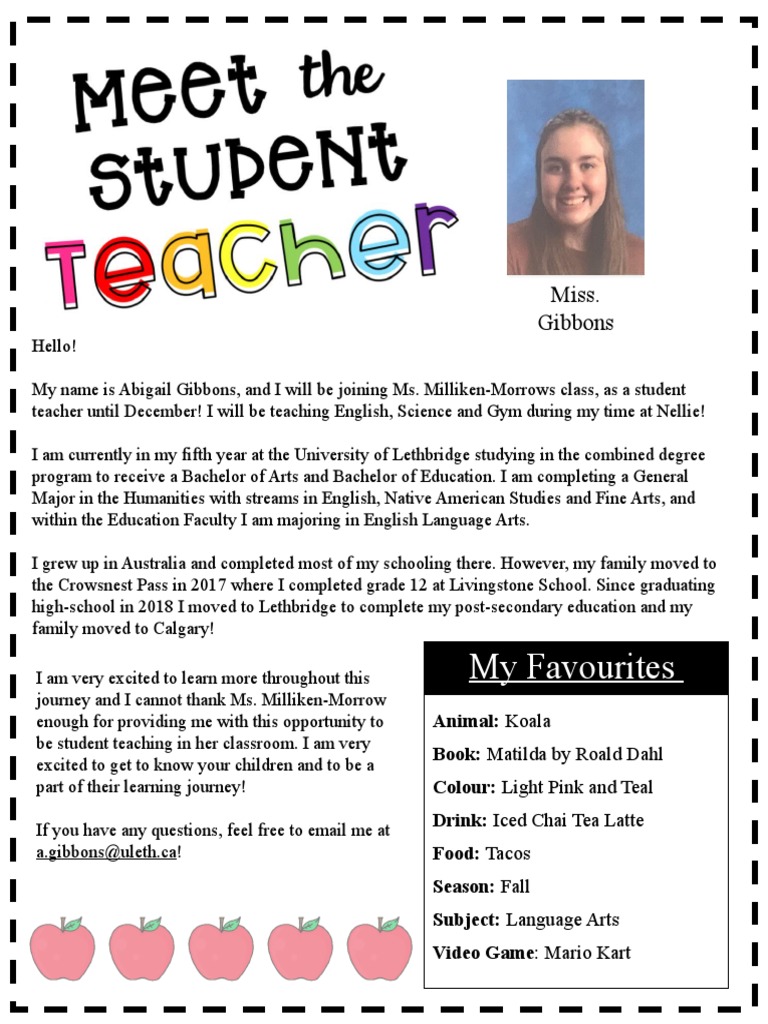 Meet the
Student
Teacher
Miss.
Gibbons
Hello!
My name is Abigail Gibbons, and I will be joining Ms. Milliken-Morrows class, as a student
teacher until December! I will be teaching English, Science and Gym during my time at Nellie!
I am currently in my fifth year at the University of Lethbridge studying in the combined degree
program to receive a Bachelor of Arts and Bachelor of Education. I am completing a General
Major in the Humanities with streams in English, Native American Studies and Fine Arts, and
within the Education Faculty I am majoring in English Language Arts.
I grew up in Australia and completed most of my schooling there. However, my family moved to
the Crowsnest Pass in 2017 where I completed grade 12 at Livingstone School. Since graduating
high-school in 2018 I moved to Lethbridge to complete my post-secondary education and my
family moved to Calgary!
I am very excited to learn more throughout this
journey and I cannot thank Ms. Milliken-Morrow
enough for providing me with this opportunity to
be student teaching in her classroom. I am very
excited to get to know your children and to be a
part of their learning journey!
If you have any questions, feel free to email me at
a.gibbons@uleth.ca!
My Favourites
Animal: Koala
Book: Matilda by Roald Dahl
Colour: Light Pink and Teal
Drink: Iced Chai Tea Latte
Food: Tacos
Season: Fall
Subject: Language Arts
Video Game: Mario Kart